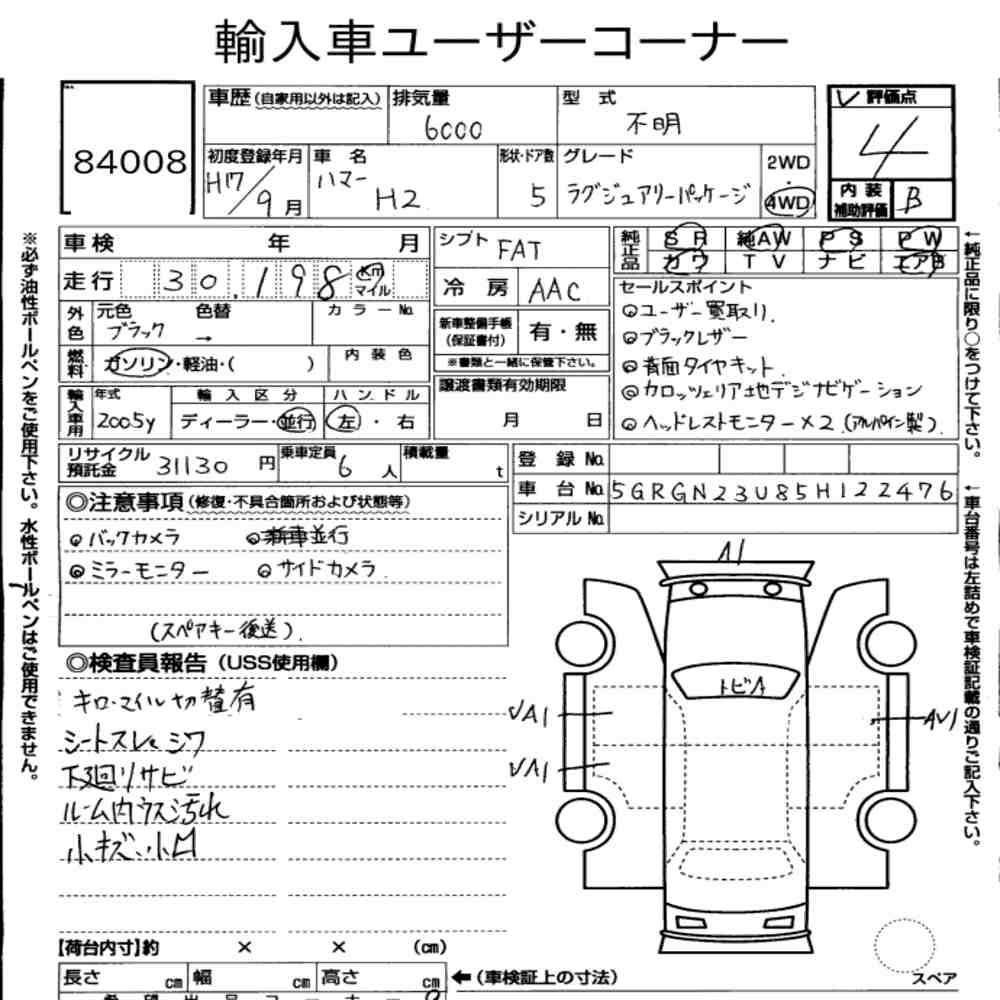 輸入車ユーザーコーナー
84008
車歴(自家用以外は記入) 排気量 型式
6000 不明
初度登録年月 車名 形状・ドア数 グレード 2WD
H17/9月 ハマー H2 5 ラグジュアリーパッケージ 4WD
評価点
4
内装補助評価 B
車検 年 月
走行 30,198 Km マイル
外色 元色 色替 カラーNo.
ブラック →
燃料 ガソリン・軽油・( ) 内装色
輸入車用 年式 輸入区分 ハンドル
2005y ディーラー・並行 左・右
シフト FAT
冷房 AAC
新車整備手帳(保証書付) 有・無
※書類と一緒に保管下さい。
譲渡書類有効期限
月 日
純正品 SR 純AW PS PW
カワ TV ナビ エアB
セールスポイント
◎ユーザー買取り.
◎ブラックレザー
◎背面タイヤキット.
◎カロッツェリア地デジナビゲーション
◎ヘッドレストモニター×2.(アルパイン製).
リサイクル預託金 31130円 乗車定員 6人 積載量 t
登録No.
車台No. 5GRGN23U85H122476
シリアルNo.
◎注意事項(修復・不具合箇所および状態等)
◎バックカメラ ◎新車並行
◎ミラーモニター ◎サイドカメラ
(スペアキー後送).
◎検査員報告(USS使用欄)
キロ・マイル切替有
シートスレ、シワ
下廻りサビ
ルーム内ウス汚れ
小キズ、小凹
A1
トビA
UA1
UA1
AU1
【荷台内寸】約 × × (cm)
長さ cm 幅 cm 高さ cm ←(車検証上の寸法)
スペア
※必ず油性ボールペンをご使用下さい。水性ボールペンはご使用できません。
←純正品に限り○をつけて下さい。
←車台番号は左詰めで車検証記載の通りご記入下さい。